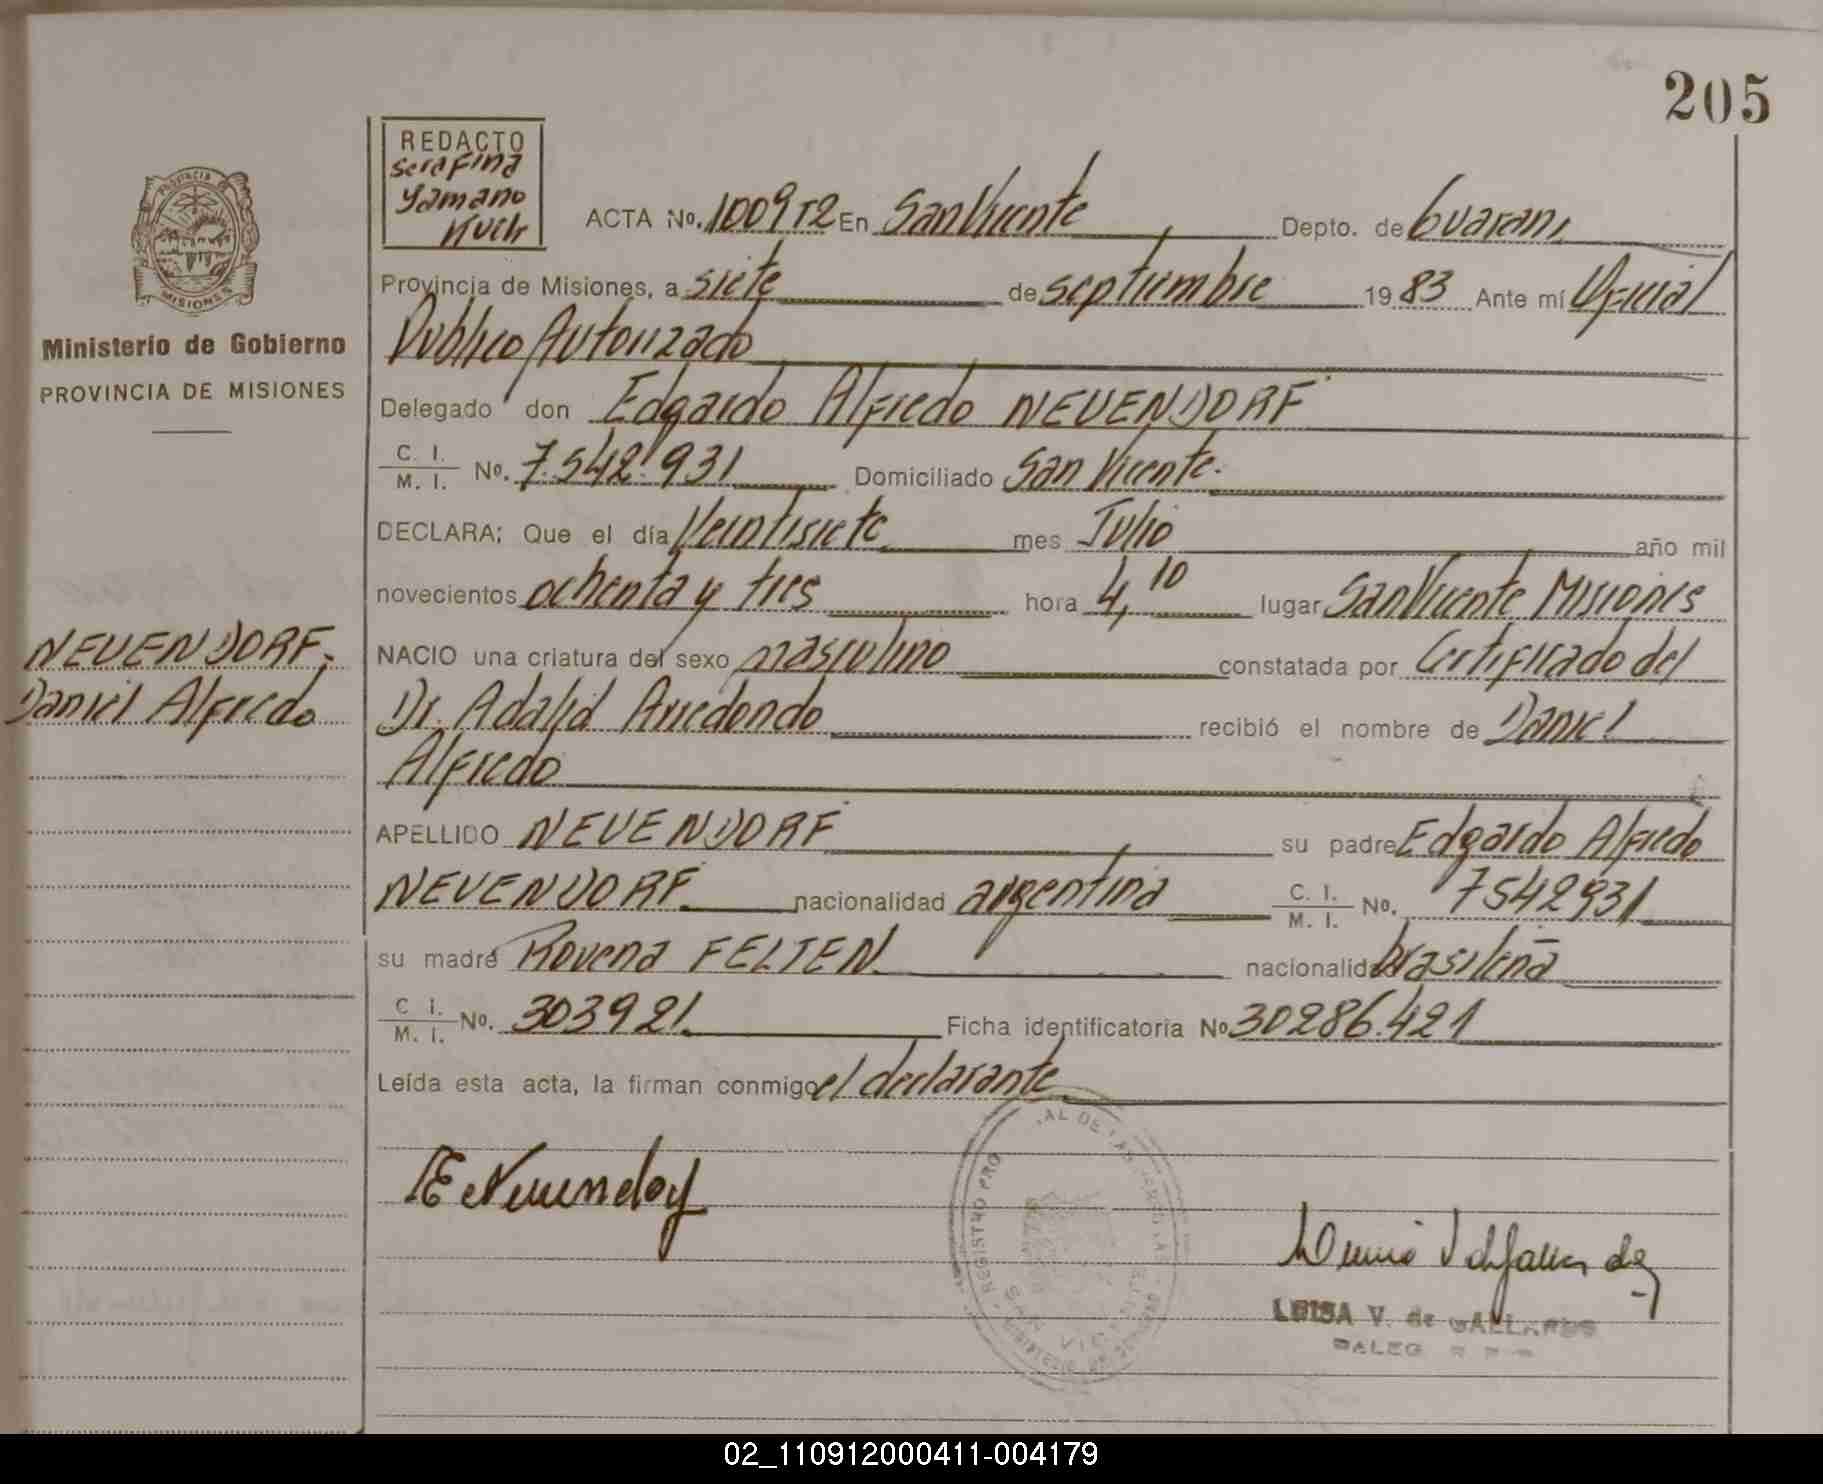 205
REDACTO
Serafina
Yamano
Kuch
ACTA No. 1009T2 En San Vicente Depto. de Guarani
Provincia de Misiones, a siete de septiembre 19 83 Ante mí Oficial
Publico Autorizado
Delegado don Edgardo Alfredo NEUENDORF
C. I.
M. I. No. 7.542.931 Domiciliado San Vicente.
DECLARA; Que el día Veintisiete mes Julio año mil
novecientos ochenta y tres hora 4,10 lugar San Vicente Misiones
NACIO una criatura del sexo masculino constatada por Certificado del
Dr. Adalid Arredondo recibió el nombre de Daniel
Alfredo
APELLIDO NEUENDORF su padre Edgardo Alfredo
NEUENDORF. nacionalidad argentina C. I. M. I. No. 7542931
su madre Rovena FELTEN. nacionalidad brasileña
C. I.
M. I. No. 303921. Ficha identificatoria No 30286.421
Leída esta acta, la firman conmigo el declarante
PROVINCIA
MISIONES
Ministerio de Gobierno
PROVINCIA DE MISIONES
NEUENDORF.
Daniel Alfredo
REGISTRO PRO AL DE LAS PERSONAS
SAN VICENTE
LUISA V. de GALLARDO
02_110912000411-004179